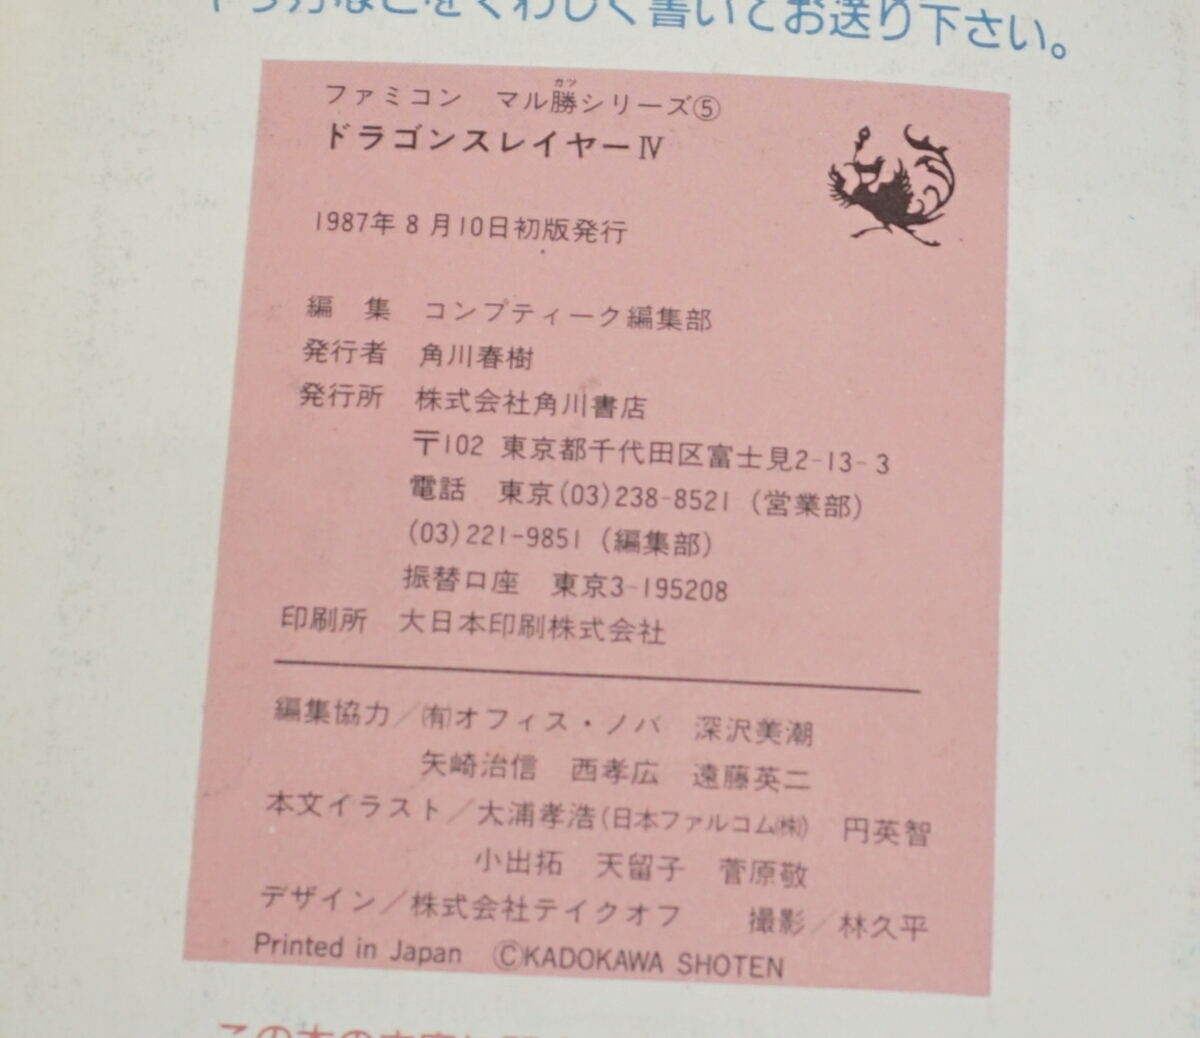 やり方などをくわしく書いてお送り下さい。
ファミコン マル勝シリーズ⑤
カツ
ドラゴンスレイヤーⅣ
1987年8月10日初版発行
編 集 コンプティーク編集部
発行者 角川春樹
発行所 株式会社角川書店
〒102 東京都千代田区富士見2-13-3
電話 東京(03)238-8521(営業部)
(03)221-9851(編集部)
振替口座 東京3-195208
印刷所 大日本印刷株式会社
編集協力/㈲オフィス・ノバ 深沢美潮
矢崎治信 西孝広 遠藤英二
本文イラスト/大浦孝浩(日本ファルコム㈱) 円英智
小出拓 天留子 菅原敬
デザイン/株式会社テイクオフ 撮影/林久平
Printed in Japan ©KADOKAWA SHOTEN
この本の内容に